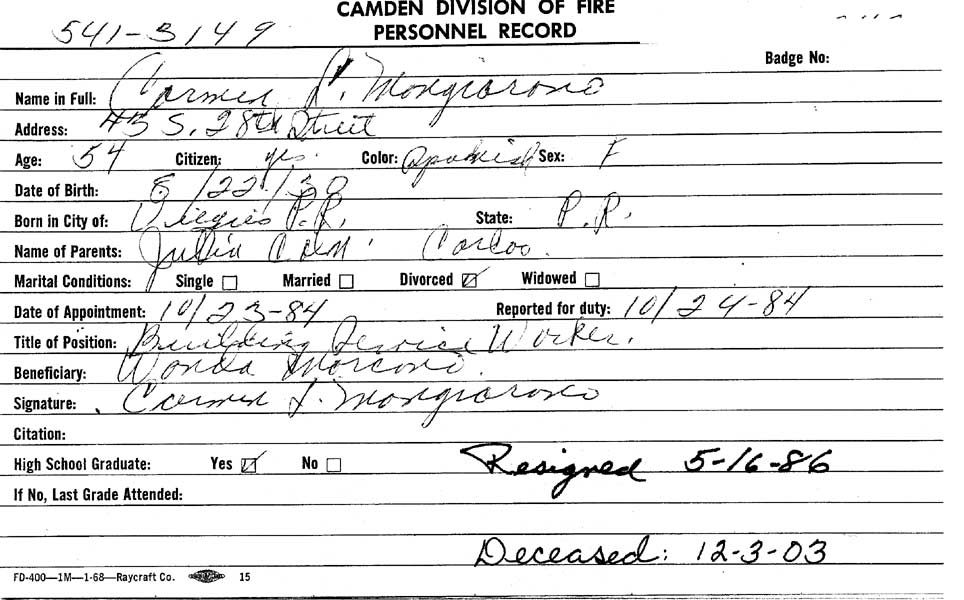 CAMDEN DIVISION OF FIRE
541-3149 PERSONNEL RECORD
Badge No:
Name in Full: Carmen L. Mongiarono
Address: 43 S. 28th Street
Age: 54 Citizen: yes. Color: Spanish Sex: F
Date of Birth: 8/22/30
Born in City of: Vieques P.R. State: P.R.
Name of Parents: Julia Carlos.
Marital Conditions: Single ☐ Married ☐ Divorced ☑ Widowed ☐
Date of Appointment: 10/23-84 Reported for duty: 10/24-84
Title of Position: Building Service Worker.
Beneficiary: Wonda
Signature: Carmen L. Mongiarono
Citation:
High School Graduate: Yes ☑ No ☐ Resigned 5-16-86
If No, Last Grade Attended:
Deceased: 12-3-03
FD-400—1M—1-68—Raycraft Co. 15